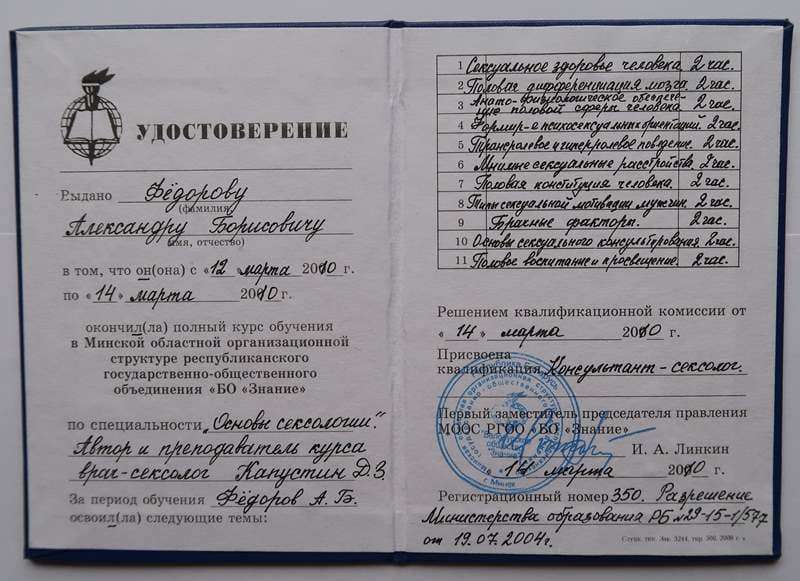 УДОСТОВЕРЕНИЕ
Выдано Фёдорову
(фамилия,
Александру Борисовичу
имя, отчество)
в том, что он(она) с «12 марта 2010 г.
по «14» марта 2010 г.
окончил(ла) полный курс обучения
в Минской областной организационной
структуре республиканского
государственно-общественного
объединения «БО «Знание»
по специальности „Основы сексологии".
Автор и преподаватель курса
врач-сексолог Капустин Д.З.
За период обучения Фёдоров А.Б.
освоил(ла) следующие темы:
1 Сексуальное здоровье человека 2 час.
2 Половая дифференциация мозга 2 час.
3 Анато-физиологическое обеспече-
ние половой сферы человека 2 час.
4 Формир-е психосексуальных ориентаций. 2 час.
5 Трансролевое и гиперролевое поведение. 2 час.
6 Мнимые сексуальные расстройства. 2 час.
7 Половая конституция человека 2 час.
8 Типы сексуальной мотивации мужчин. 2 час.
9 Брачные факторы. 2 час.
10 Основы сексуального консультирования 2 час.
11 Половое воспитание и просвещение. 2 час.
Решением квалификационной комиссии от
«14» марта 2010 г.
Присвоена
квалификация Консультант-сексолог.
Первый заместитель председателя правления
МООС РГОО «БО «Знание»
И. А. Линкин
«14» марта 2010 г.
г. Минск
Регистрационный номер 350. Разрешение
Министерства образования РБ №29-15-1/577
от 19.07.2004г.